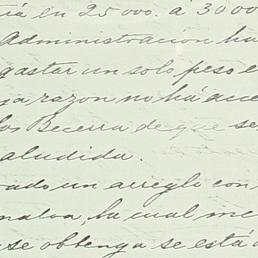 en 25 000. á 30 00
Administracion ha
gastar un solo peso e
ya razon no há que
los Becerra de que se
aludida.
ado un arreglo con
naloa, la cual me
se obtenga se está